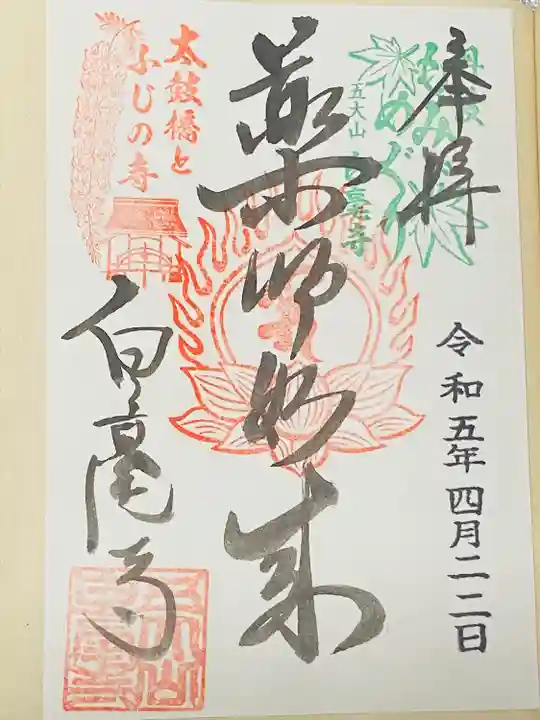 奉拝
令和五年四月二二日
もみじ
めぐり
五大山
白毫寺
薬師如来
太鼓橋と
ふじの寺
白毫寺